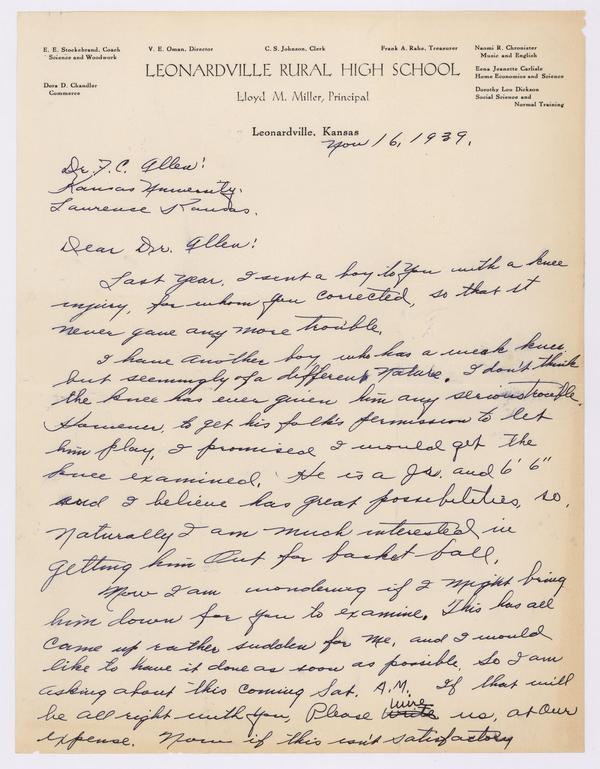 E. E. Stockebrand, Coach
Science and Woodwork
V. E. Oman, Director
C. S. Johnson, Clerk
Frank A. Rahe, Treasurer
Naomi R. Chronister
Music and English
LEONARDVILLE RURAL HIGH SCHOOL
Eena Jeanette Carlisle
Home Economics and Science
Dora D. Chandler
Commerce
Lloyd M. Miller, Principal
Dorothy Lou Dickson
Social Science and
Normal Training
Leonardville, Kansas
Nov 16, 1939.
Dr. F. C. Allen:
Kansas University.
Laurense Kansas.
Dear Dr. Allen:
Last year, I sent a boy to you with a knee
injury, for whom you corrected, so that it
never gave any more trouble.
I have another boy who has a weak knee,
but seemingly of a different nature. I don't think
the knee has ever given him any serious trouble.
However, to get his folk's permission to let
him play, I promised I would get the
knee examined. He is a Jr. and 6' 6"
and I believe has great possibilities, so,
naturally I am much interested in
getting him out for basket ball.
Now I am wondering if I might bring
him down for you to examine. This has all
came up rather sudden for me, and I would
like to have it done as soon as possible. So I am
asking about this coming Sat. A.M. If that will
be all right with you, Please wire us, at our
expense. Now if this isn't satisfactory